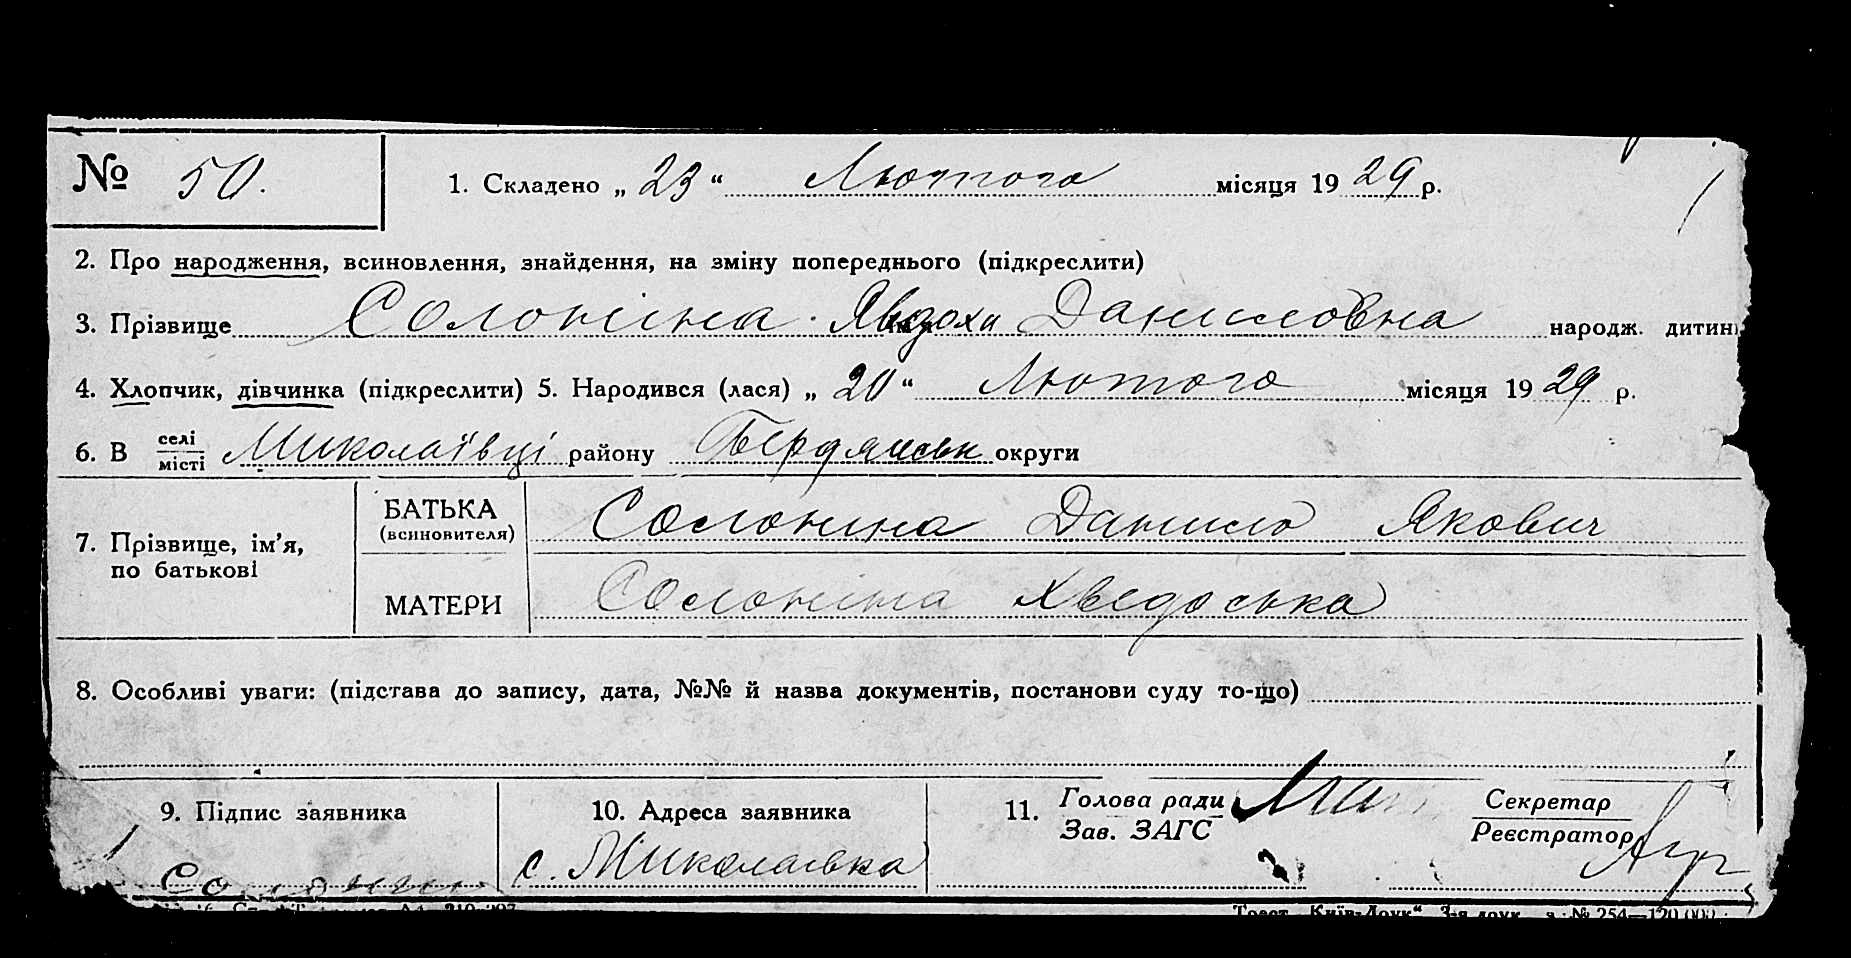 № 50. 1. Складено „ 23 “ Лютого місяця 19 29 р.
2. Про народження, всиновлення, знайдення, на зміну попереднього (підкреслити)
3. Прізвище Солоніна Явдоха Даниловна народж. дитини
4. Хлопчик, дівчинка (підкреслити) 5. Народився (лася) „ 20 “ Лютого місяця 19 29 р.
6. В селі/місті Миколаївці району Бердянськ округи
7. Прізвище, ім’я, по батькові
БАТЬКА (всиновителя) Солонина Данило Якович
МАТЕРИ Солоніна Хведоська
8. Особливі уваги: (підстава до запису, дата, №№ й назва документів, постанови суду то-що)
9. Підпис заявника 10. Адреса заявника 11. Голова ради Секретар
Зав. ЗАГС Реєстратор
с. Миколаівка
Трест „Київ-Друк“ 3-я друк. з. № 254—120.000.